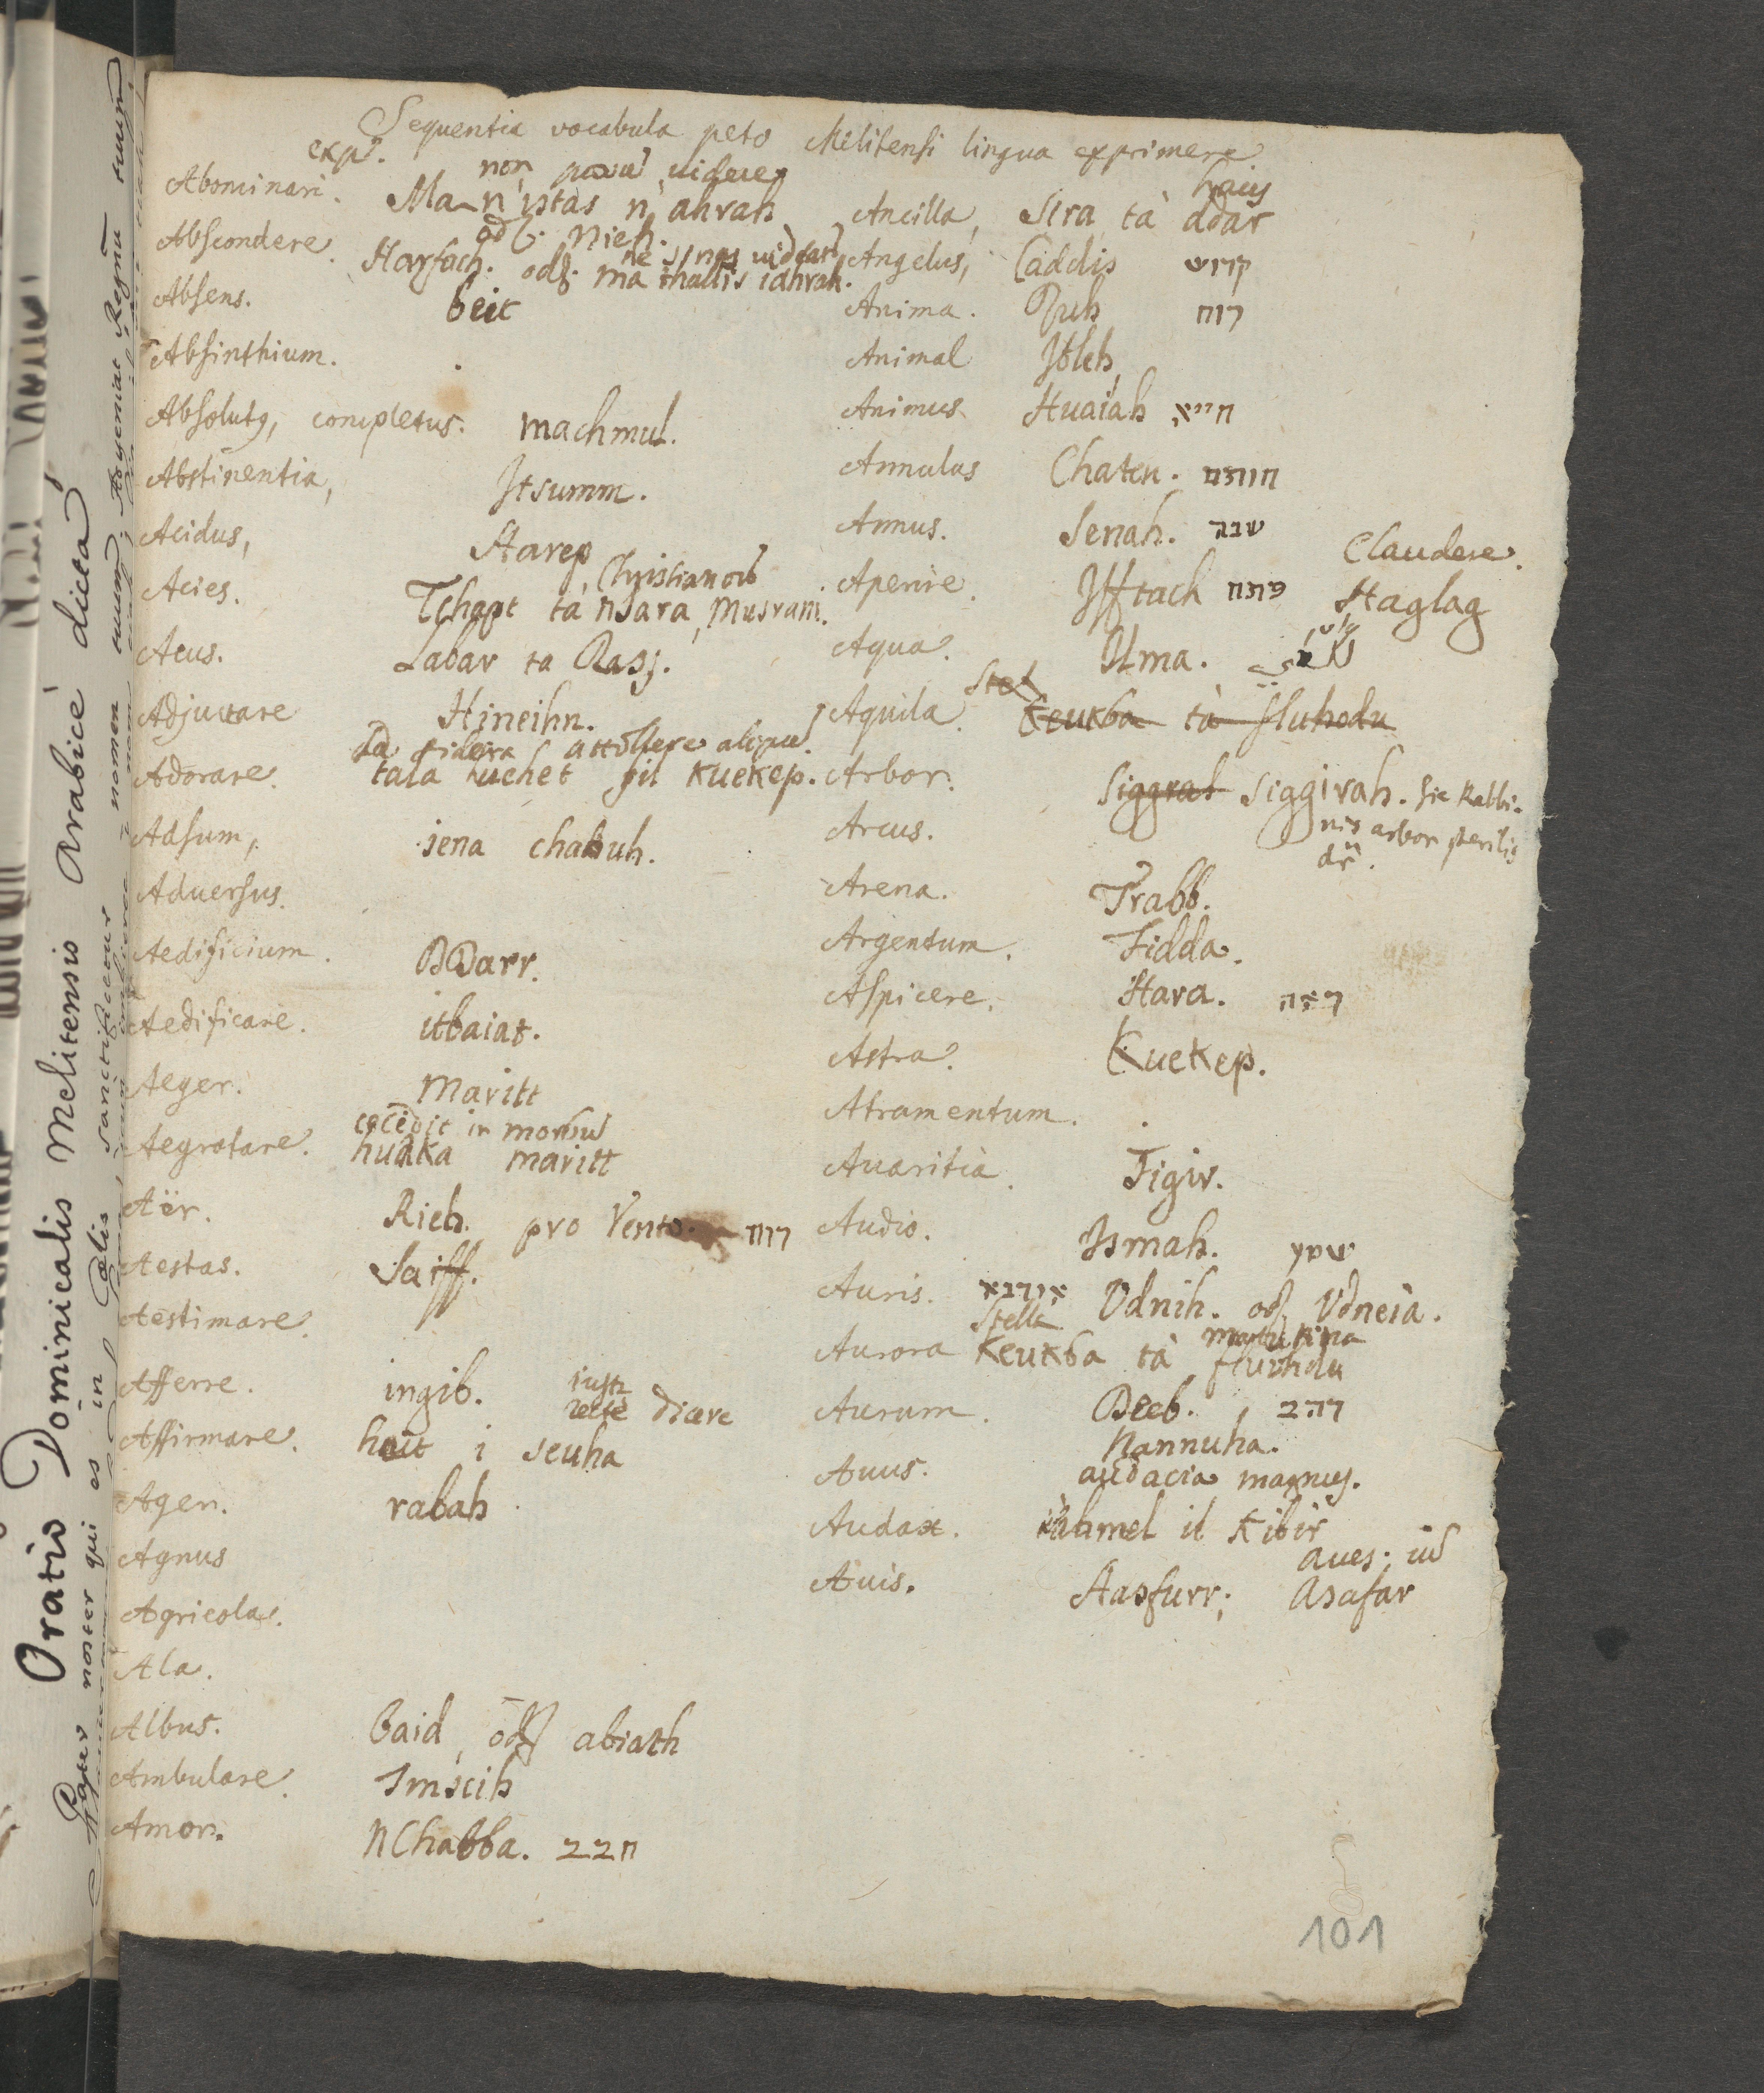 Sequentia vocabula peto Melitensi lingua exprimere.
exp.
non possū videre
Abominari. Ma n'istas n'ahrah
odſ. Nieh.
Abscondere. Harfach. odſ. ma thallis iahrah.
Absens. beit
Absinthium.
Absolutꝯ, completus. machmul.
Abstinentia, Itsumm.
Acidus, Harep
Christianorū
Acies. Tchapt ta nsara, Musrani.
Acus. Labar ta Rasj.
Adjuvare Hineihn.
ad sidera attollere
Adorare. tala uchet fil Kuekep.
Adsum, iena chabuh.
Aduersus.
Aedificium. BDarr.
Aedificare. itbaiat.
Aeger. Maritt
in morbū
Aegrotare. huaka maritt
Aër. Rieh. pro Vento. רוח
Aestas. Saiff.
Aestimare.
Afferre. ingib.
iustè
recte dicere
Affirmare. hait i seuha
Ager. rabah
Agnus
Agricola.
Ala.
Albus. Baid, odſ abiath
Ambulare. Imscih
Amor. NChabba. חבב
huius
Ancilla, Sira tà ddar
Angelus, Caddis קדש
Anima. Ruh רוח
Animal Ibleh,
Animus Huaiah חייא
Annulus Chaten. חותם
Annus. Senah. שנה
Claudere.
Aperire. Ifftach פתח Haglag
Aqua. Ilma.
Stel
Aquila. Keukba tà fluhodu
Arbor. Siggrat Siggirah. Sic Rabbi-
nis arbor sterilis
dr̄.
Arcus.
Arena. Trabb.
Argentum. Fidda.
Aspicere. Hara. ראה
Astra. Kuekep.
Atramentum.
Avaritia. Figir.
Audio. Ismah. שמע
Auris. אודנא Udnih. odſ Udneia.
Stella matutina
Aurora Keukba tà flurhdu
Aurum. Deeb. דהב
Avus. Nannuha.
audacia magnus.
Audax. iahmel il Kibir
aves
Avis. Hasfurr; Asafar
101
Oratio Dominicalis Melitensis Arabicè dicta
Pater noster qui es in Cœlis sanctificetur nomen tuum, Adveniat Regnū tuum